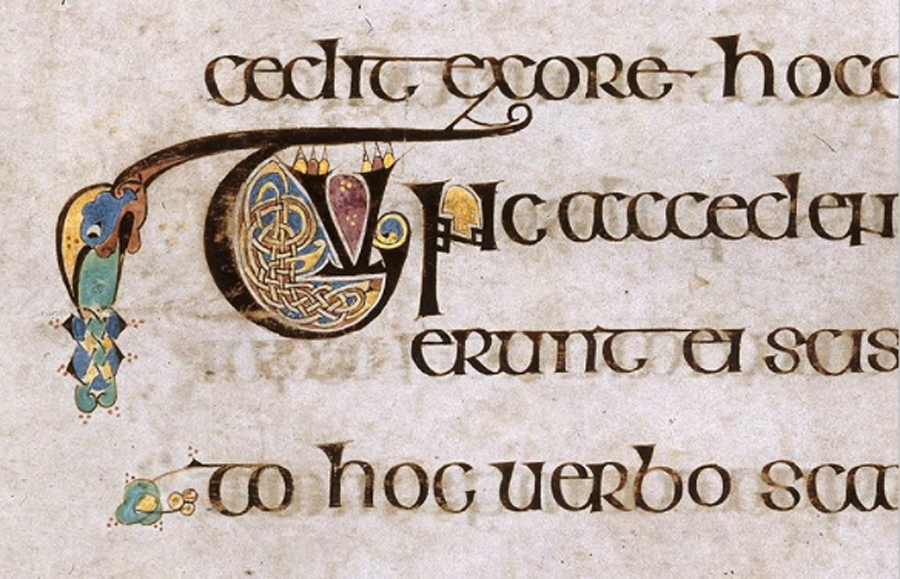 cedit exore hoc
Tunc acceden
erunt ei scis
to hoc uerbo sca